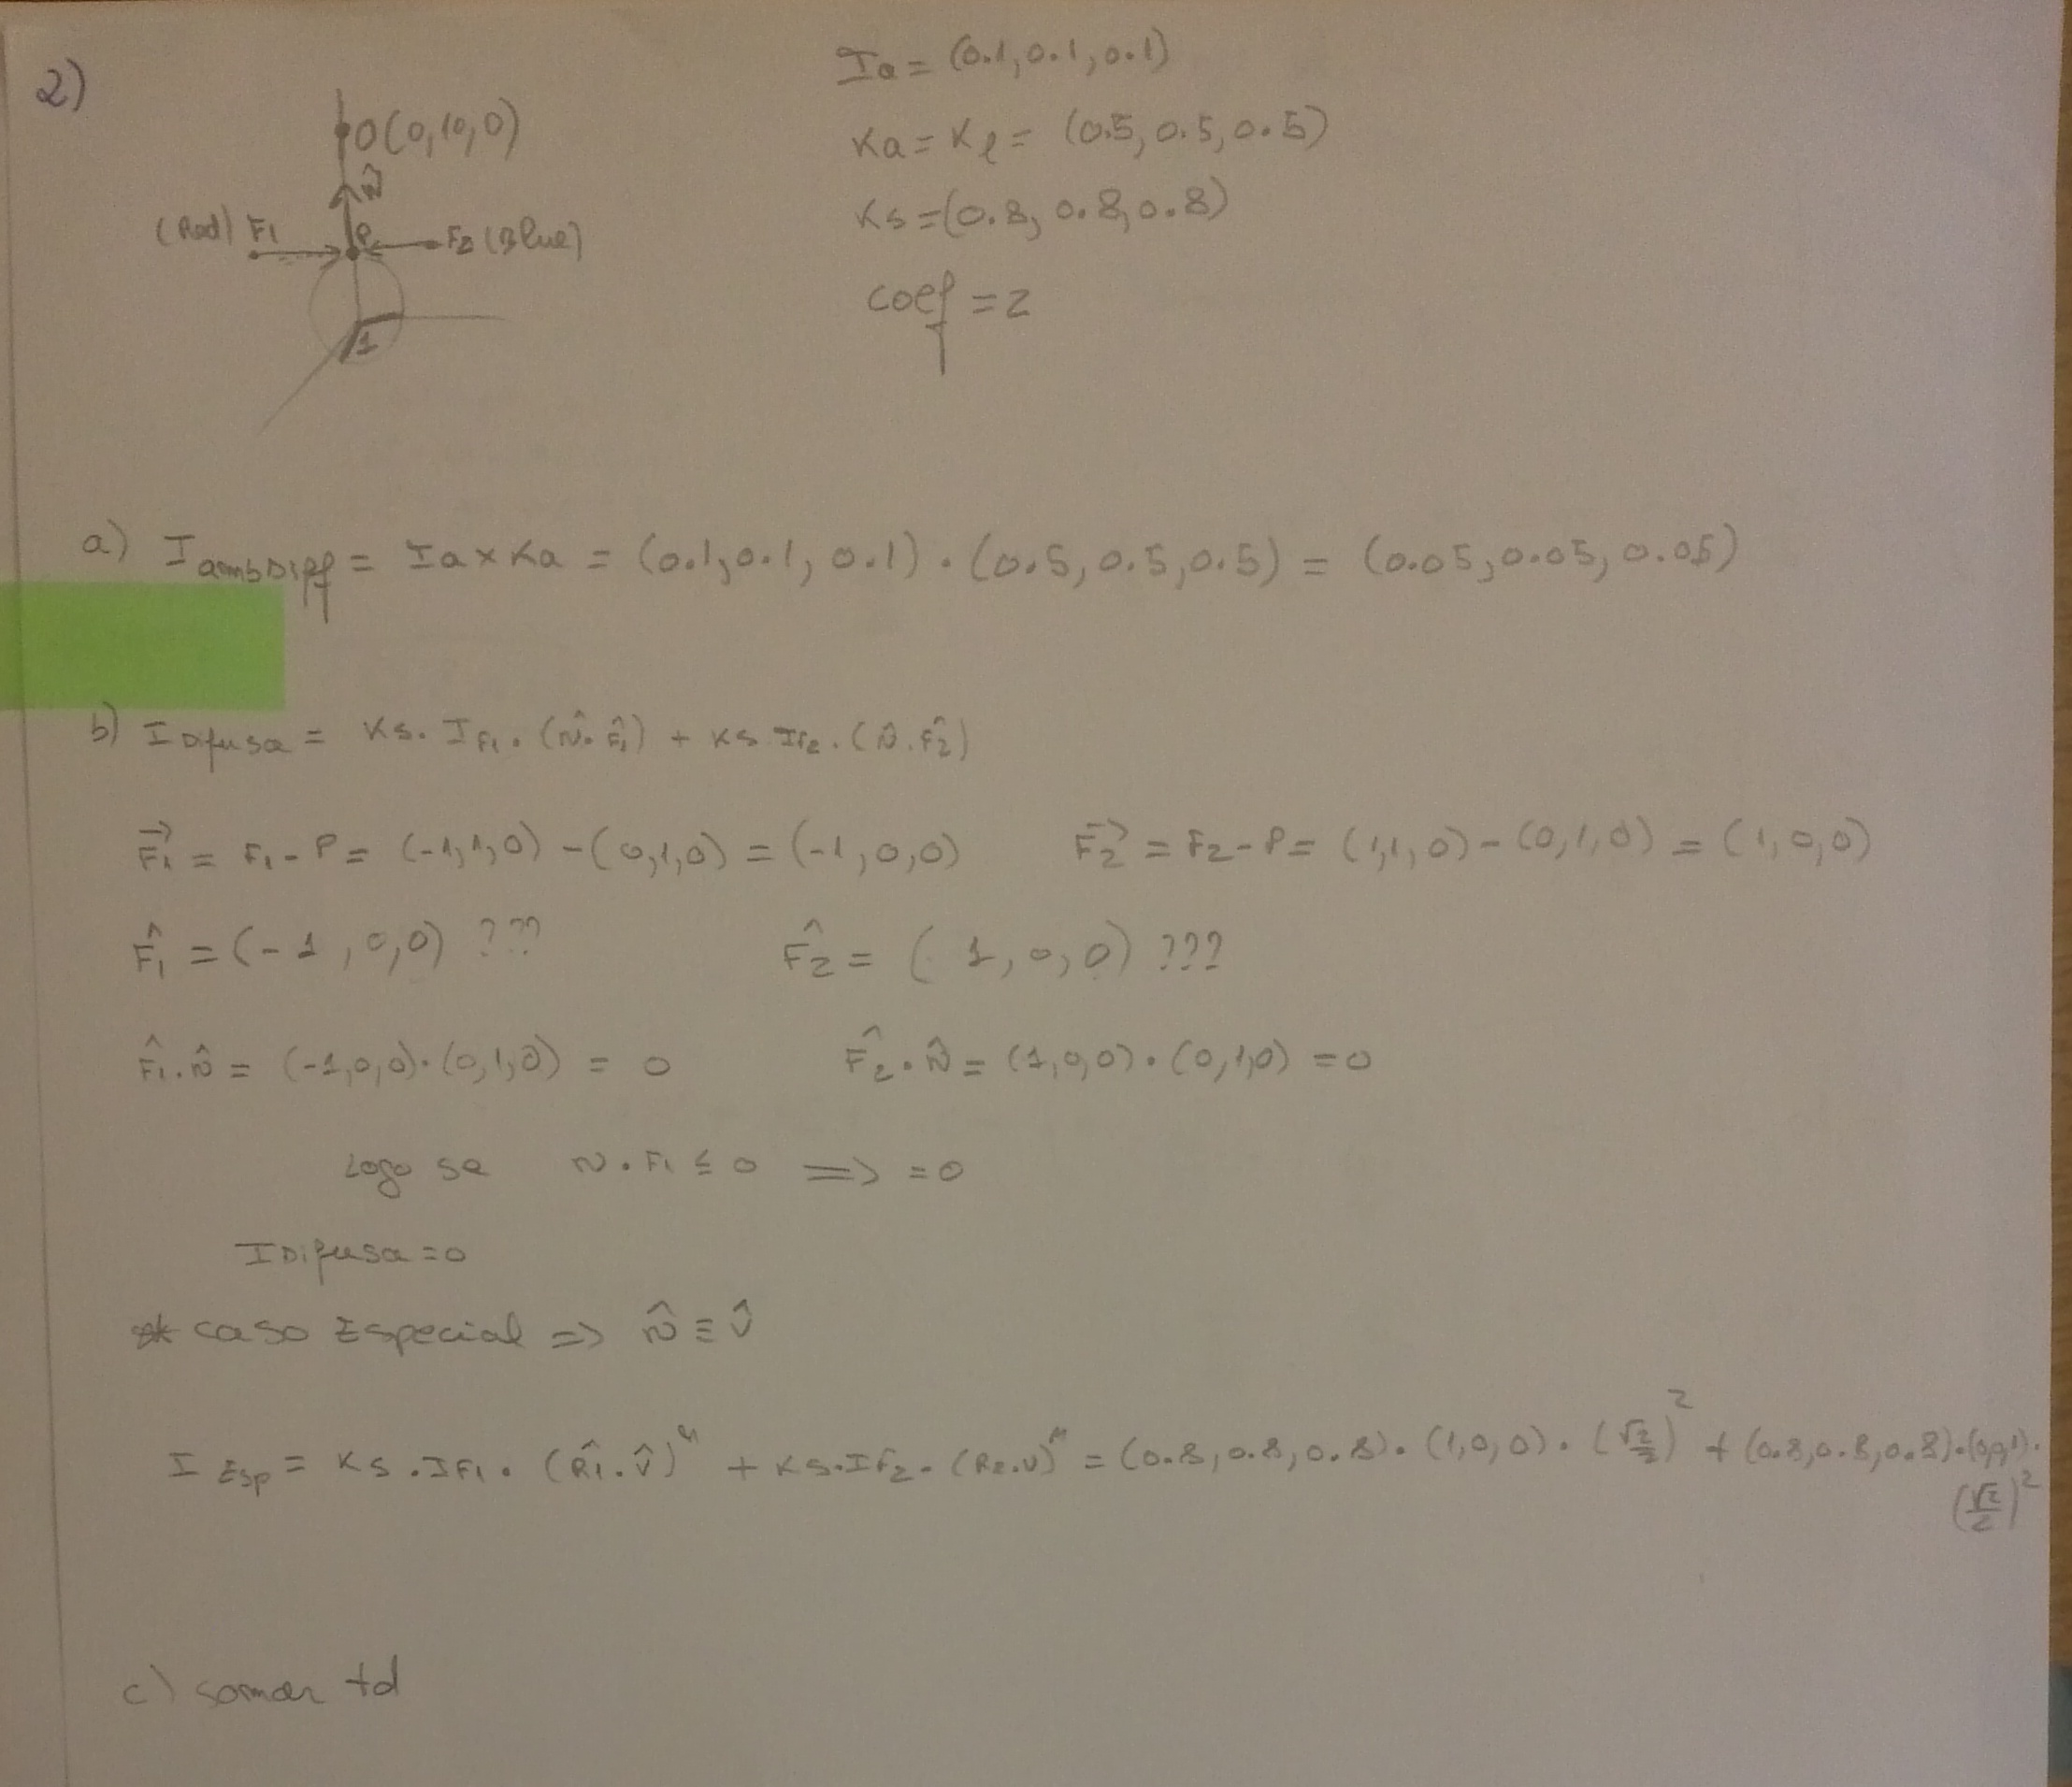 2)
Ia = (0.1, 0.1, 0.1)
O(0,10,0)
Ka = Kl = (0.5, 0.5, 0.5)
N̂
Ks = (0.8, 0.8, 0.8)
(Red) F1 P F2 (Blue)
coef = 2
1
a) I ambDiff = Ia x Ka = (0.1, 0.1, 0.1) . (0.5, 0.5, 0.5) = (0.05, 0.05, 0.05)
b) I Difusa = Ks . IF1 . (N̂ . F̂1) + Ks . IF2 . (N̂ . F̂2)
F1→ = F1 - P = (-1,1,0) - (0,1,0) = (-1,0,0) F2→ = F2 - P = (1,1,0) - (0,1,0) = (1,0,0)
F̂1 = (-1,0,0) ??? F̂2 = (1,0,0) ???
F̂1 . N̂ = (-1,0,0) . (0,1,0) = 0 F̂2 . N̂ = (1,0,0) . (0,1,0) = 0
Logo se N . F1 ≤ 0 => = 0
I Difusa = 0
* caso Especial => N̂ ≡ V̂
I Esp = Ks . IF1 . (R̂1 . V̂)ⁿ + Ks . IF2 . (R2 . V)ⁿ = (0.8, 0.8, 0.8) . (1,0,0) . (√2/2)² + (0.8, 0.8, 0.8) . (0,0,1) .
(√2/2)²
c) somar td